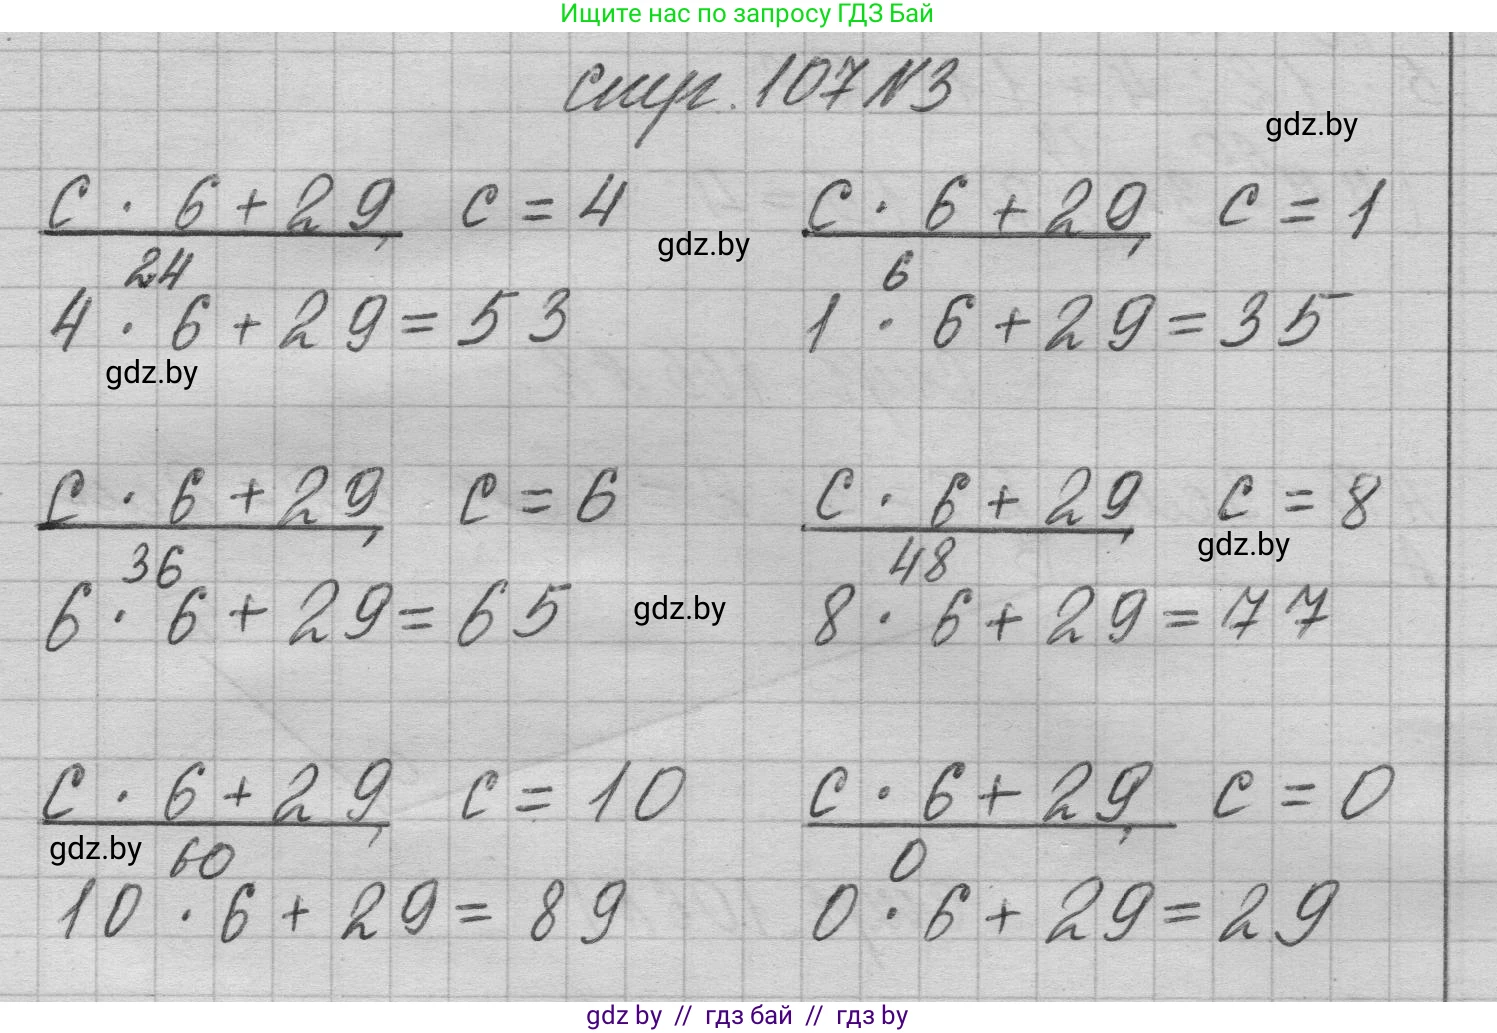 Ищите нас по запросу ГДЗ Бай
стр. 107 №3
gdz.by
с · 6 + 29, с = 4
с · 6 + 29, с = 1
gdz.by
24
4 · 6 + 29 = 53
6
1 · 6 + 29 = 35
gdz.by
с · 6 + 29, с = 6
с · 6 + 29, с = 8
gdz.by
36
6 · 6 + 29 = 65
gdz.by
48
8 · 6 + 29 = 77
с · 6 + 29, с = 10
с · 6 + 29, с = 0
gdz.by
60
10 · 6 + 29 = 89
0
0 · 6 + 29 = 29
gdz by // гдз бай // гдз by